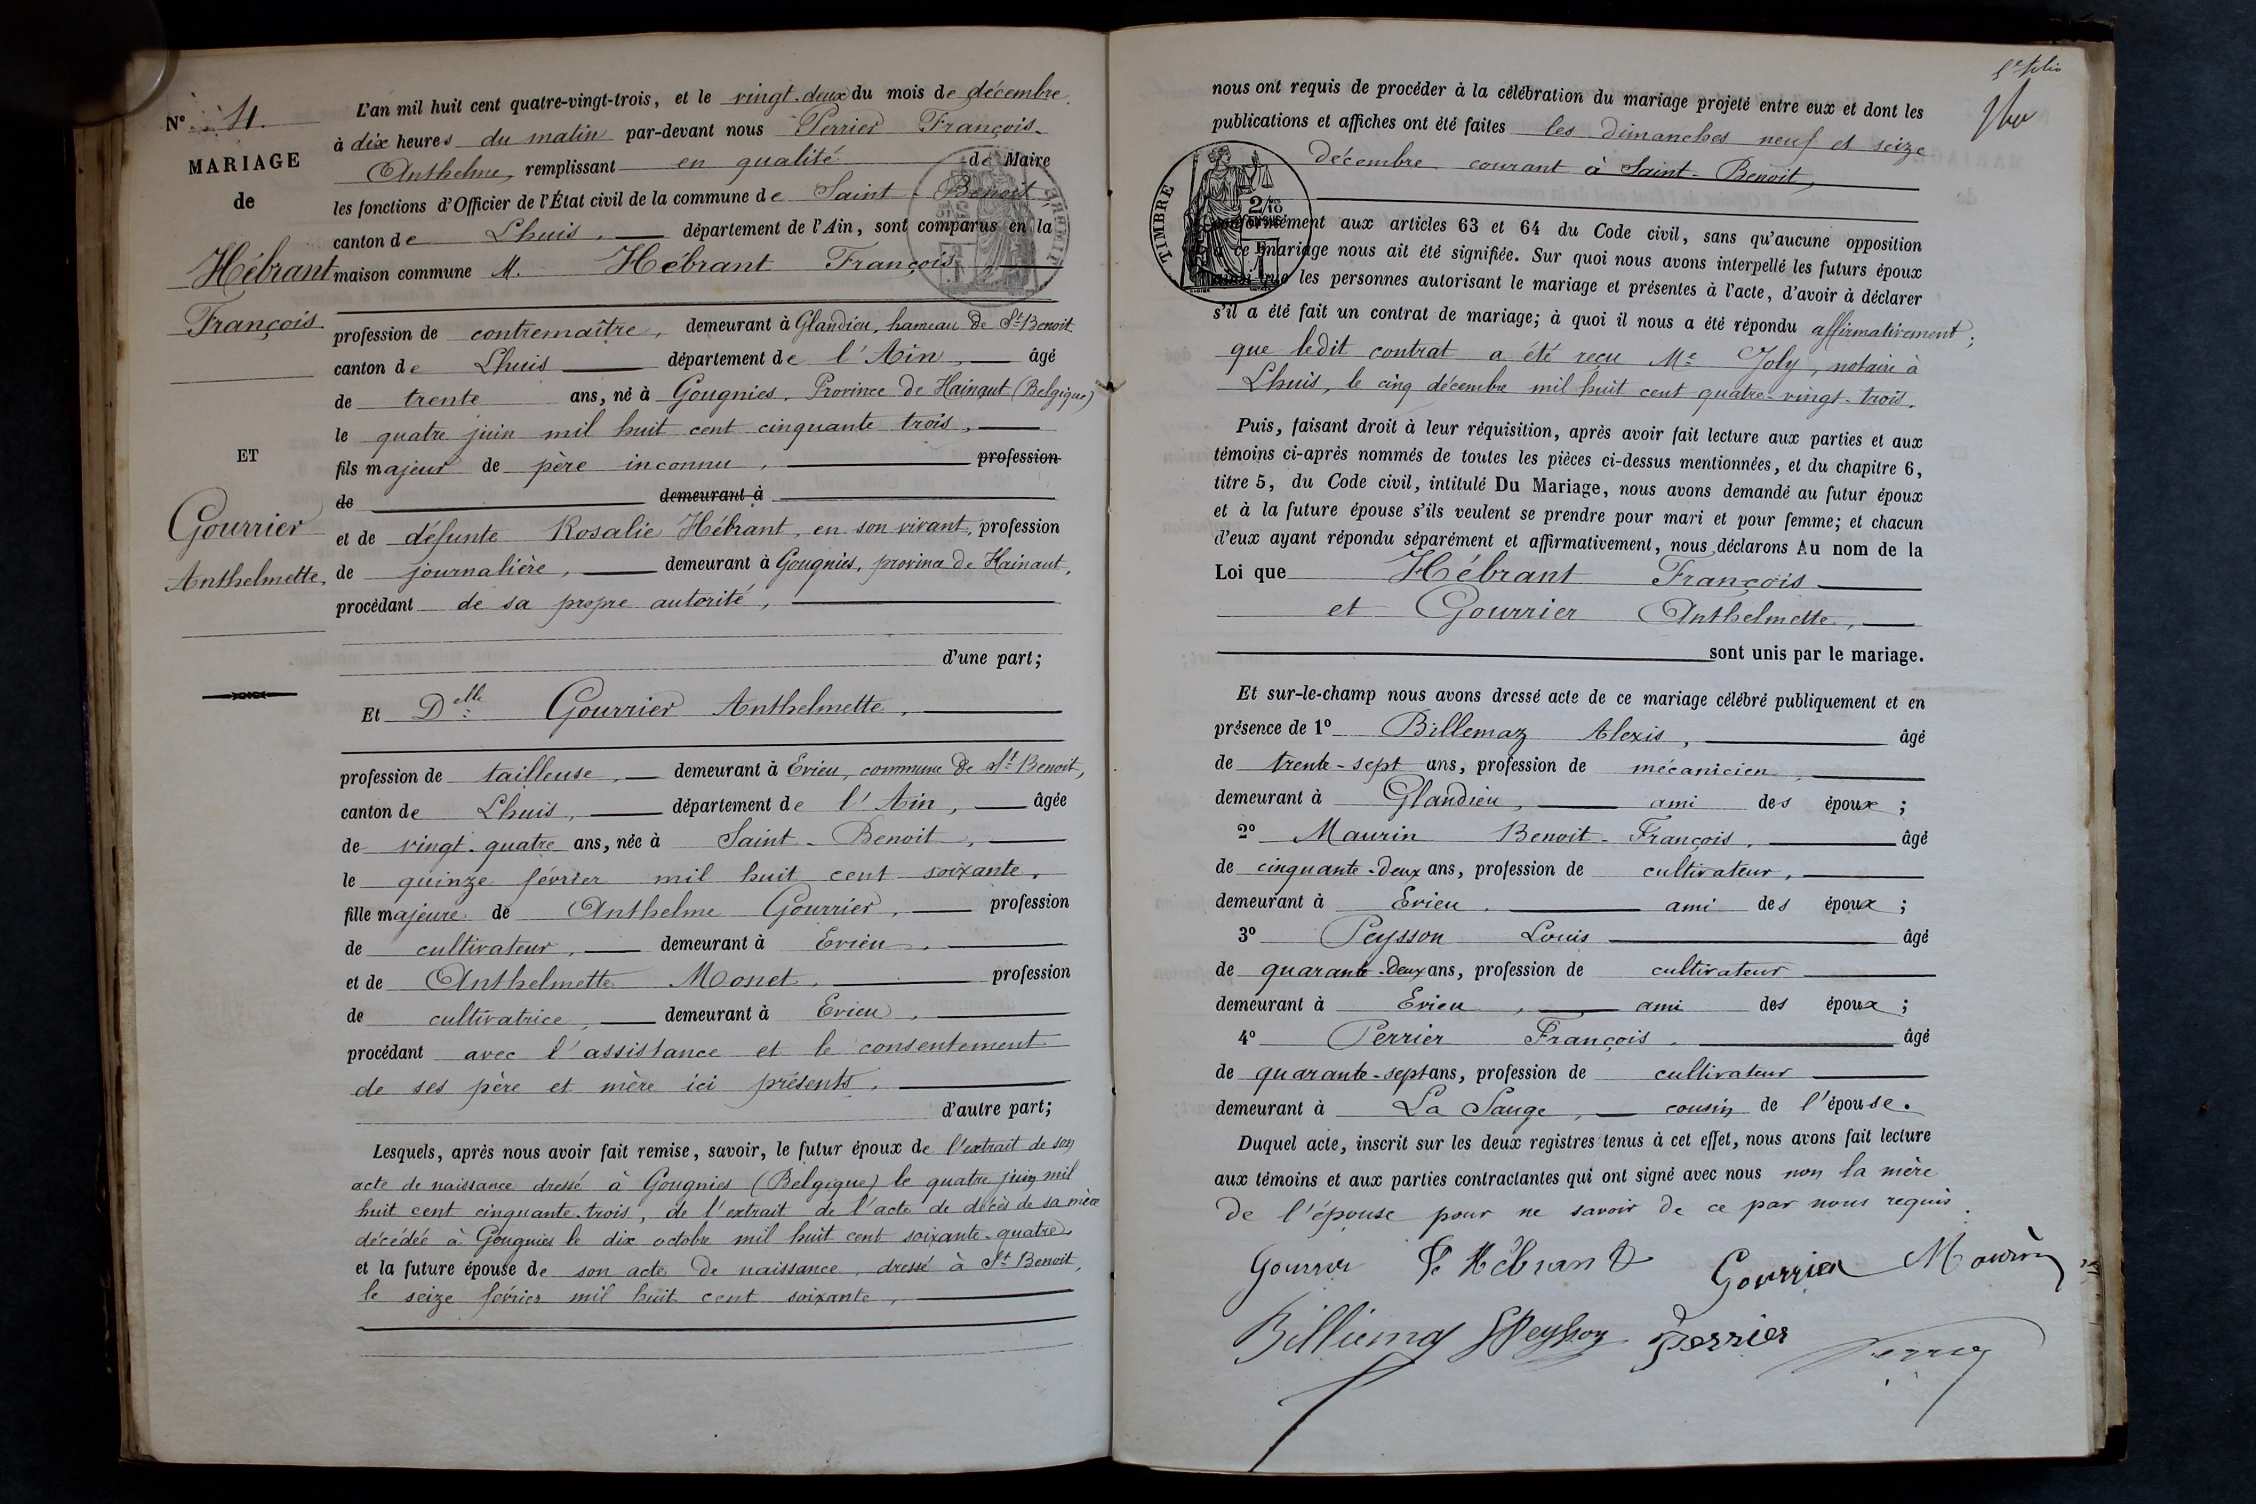 N° 4.
MARIAGE
de
Hébrant
François.
ET
Gourrier
Anthelmette.
L'an mil huit cent quatre-vingt-trois, et le vingt-deux du mois de décembre
à dix heures du matin par-devant nous Perrier François-
Anthelme, remplissant en qualité de Maire
les fonctions d'Officier de l'État civil de la commune de Saint-Benoit,
canton de Lhuis, département de l'Ain, sont comparus en la
maison commune M. Hébrant François,
profession de contremaître, demeurant à Glandieu, hameau de St-Benoit
canton de Lhuis département de l'Ain, âgé
de trente ans, né à Gougnies, Province de Hainaut (Belgique)
le quatre juin mil huit cent cinquante trois,
fils majeur de père inconnu, profession
de demeurant à
et de défunte Rosalie Hébrant, en son vivant, profession
de journalière, demeurant à Gougnies, province de Hainaut,
procédant de sa propre autorité,
d'une part;
Et Delle Gourrier Anthelmette,
profession de tailleuse, demeurant à Evieu, commune de St-Benoit,
canton de Lhuis, département de l'Ain, âgée
de vingt-quatre ans, née à Saint-Benoit,
le quinze février mil huit cent soixante,
fille majeure de Anthelme Gourrier, profession
de cultivateur, demeurant à Evieu,
et de Anthelmette Monet, profession
de cultivatrice, demeurant à Evieu,
procédant avec l'assistance et le consentement
de ses père et mère ici présents,
d'autre part;
Lesquels, après nous avoir fait remise, savoir, le futur époux de l'extrait de son
acte de naissance dressé à Gougnies (Belgique) le quatre juin mil
huit cent cinquante-trois, de l'extrait de l'acte de décès de sa mère
décédée à Gougnies le dix octobre mil huit cent soixante-quatre,
et la future épouse de son acte de naissance dressé à St-Benoit,
le seize février mil huit cent soixante,
nous ont requis de procéder à la célébration du mariage projeté entre eux et dont les
publications et affiches ont été faites les dimanches neuf et seize
décembre courant à Saint-Benoit,
TIMBRE
conformément aux articles 63 et 64 du Code civil, sans qu'aucune opposition
à ce mariage nous ait été signifiée. Sur quoi nous avons interpellé les futurs époux
ainsi que les personnes autorisant le mariage et présentes à l'acte, d'avoir à déclarer
s'il a été fait un contrat de mariage; à quoi il nous a été répondu affirmativement;
que ledit contrat a été reçu Me Joly, notaire à
Lhuis, le cinq décembre mil huit cent quatre-vingt-trois.
Puis, faisant droit à leur réquisition, après avoir fait lecture aux parties et aux
témoins ci-après nommés de toutes les pièces ci-dessus mentionnées, et du chapitre 6,
titre 5, du Code civil, intitulé Du Mariage, nous avons demandé au futur époux
et à la future épouse s'ils veulent se prendre pour mari et pour femme; et chacun
d'eux ayant répondu séparément et affirmativement, nous déclarons Au nom de la
Loi que Hébrant François
et Gourrier Anthelmette,
sont unis par le mariage.
Et sur-le-champ nous avons dressé acte de ce mariage célébré publiquement et en
présence de 1° Billemaz Alexis, âgé
de trente-sept ans, profession de mécanicien,
demeurant à Glandieu, ami des époux;
2° Maurin Benoit-François, âgé
de cinquante-deux ans, profession de cultivateur,
demeurant à Evieu, ami des époux;
3° Peysson Louis âgé
de quarante-deux ans, profession de cultivateur
demeurant à Evieu, ami des époux;
4° Perrier François, âgé
de quarante-sept ans, profession de cultivateur
demeurant à La Sauge, cousin de l'épouse.
Duquel acte, inscrit sur les deux registres tenus à cet effet, nous avons fait lecture
aux témoins et aux parties contractantes qui ont signé avec nous non la mère
de l'épouse pour ne savoir de ce par nous requis.
Gourrier Hébrant Gourrier Maurin
Billiemaz Peysson Perrier Perrier